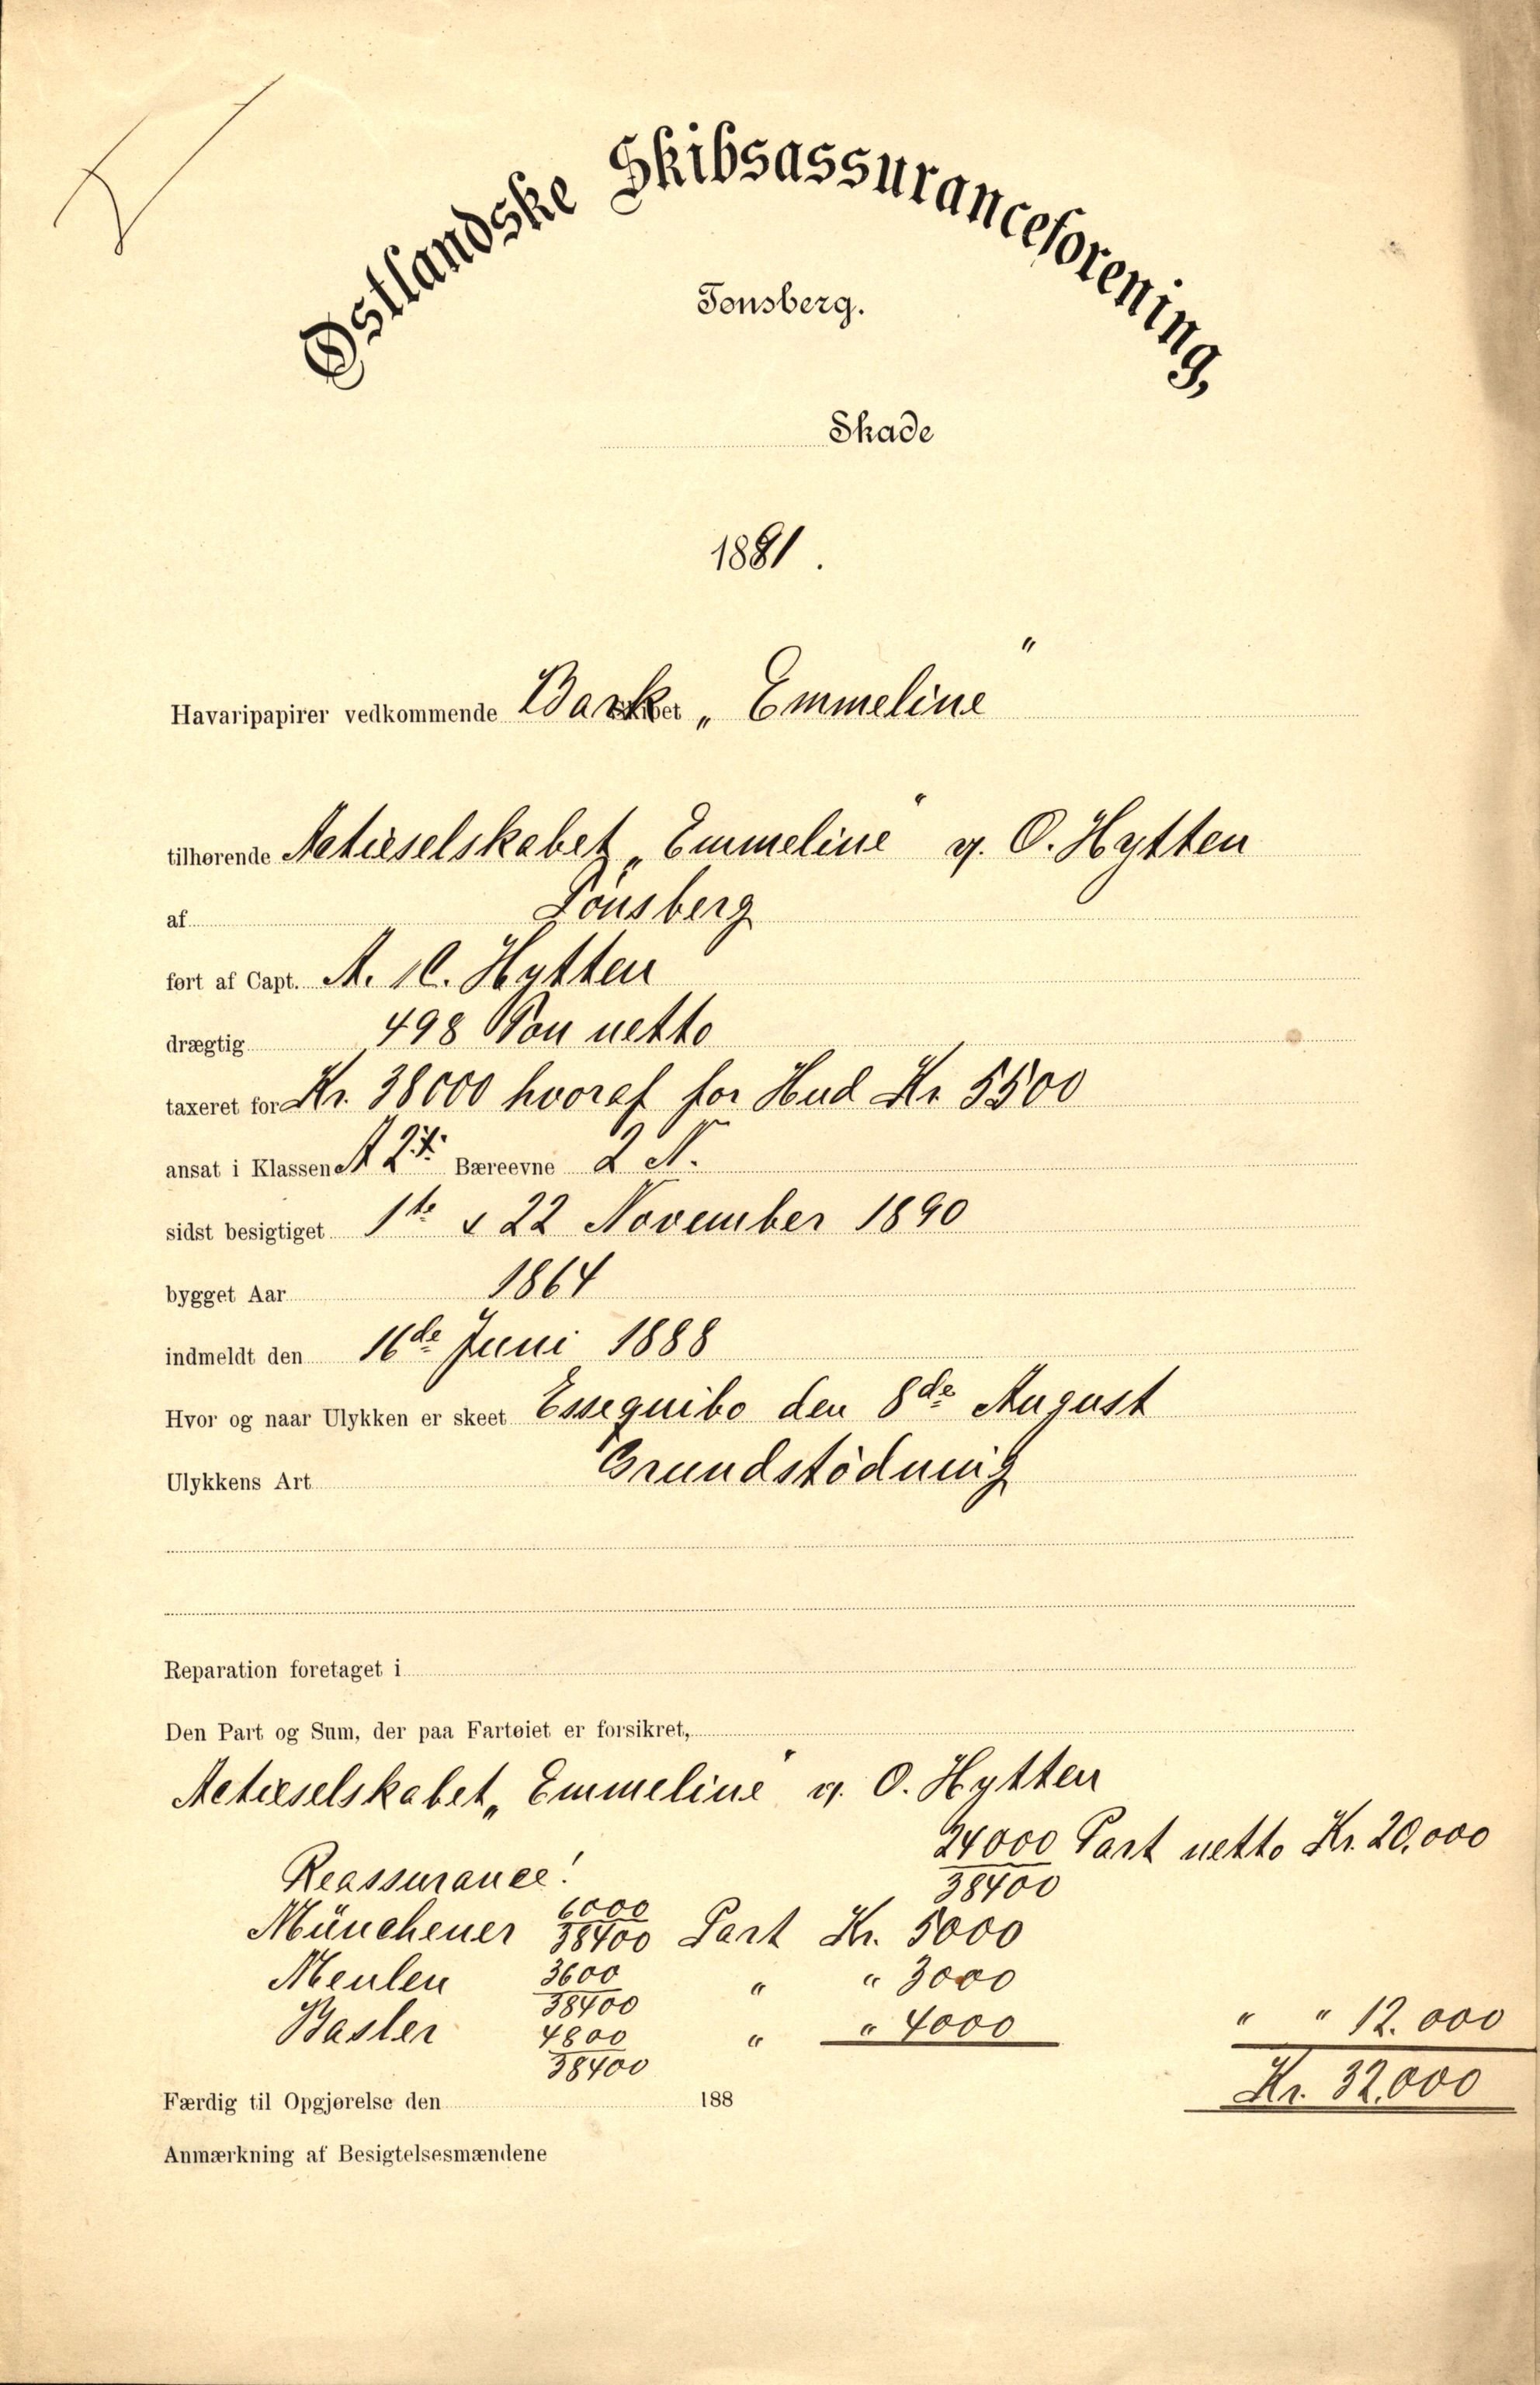 Østlandske Skibsassuranceforening,
Tønsberg.
Skade
1891.
Havaripapirer vedkommende Bark „Emmeline"
tilhørende Actieselskabet „Emmeline" v. O. Hytten
af Tönsberg
ført af Capt. A. C. Hytten
drægtig 498 Ton netto
taxeret for Kr. 38000 hvoraf for Hud Kr 5500
ansat i Klassen A 2 Bæreevne 2 N.
sidst besigtiget 1te & 22 November 1890
bygget Aar 1864
indmeldt den 16de Juni 1888
Hvor og naar Ulykken er skeet Essequibo den 8de August
Ulykkens Art Grundstödning
Reparation foretaget i
Den Part og Sum, der paa Fartøiet er forsikret,
Actieselskabet „Emmeline" v. O. Hytten
24000/38400 Part netto Kr. 20.000
Reassurance!
Münchener 6000/38400 Part Kr. 5000
Meulen 3600/38400 " " 3000
Basler 4800/38400 " " 4000 " " 12.000
Kr. 32.000
Færdig til Opgjørelse den 188
Anmærkning af Besigtelsesmændene